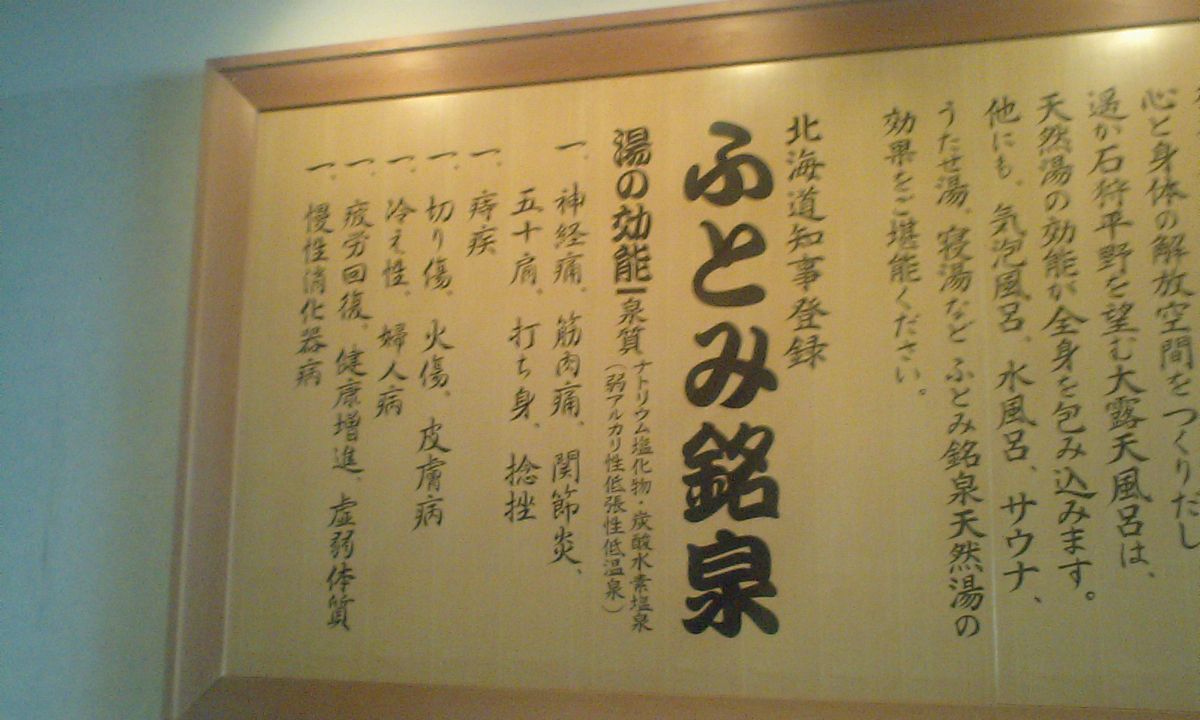 心と身体の解放空間をつくりだし
遥か石狩平野を望む大露天風呂は、
天然湯の効能が全身を包み込みます。
他にも、気泡風呂、水風呂、サウナ、
うたせ湯、寝湯など ふとみ銘泉天然湯の
効果をご堪能ください。
北海道知事登録
ふとみ銘泉
湯の効能―泉質 ナトリウム塩化物・炭酸水素塩泉
（弱アルカリ性低張性低温泉）
一、神経痛、筋肉痛、関節炎、
五十肩、打ち身、捻挫
一、痔疾
一、切り傷、火傷、皮膚病
一、冷え性、婦人病
一、疲労回復、健康増進、虚弱体質
一、慢性消化器病